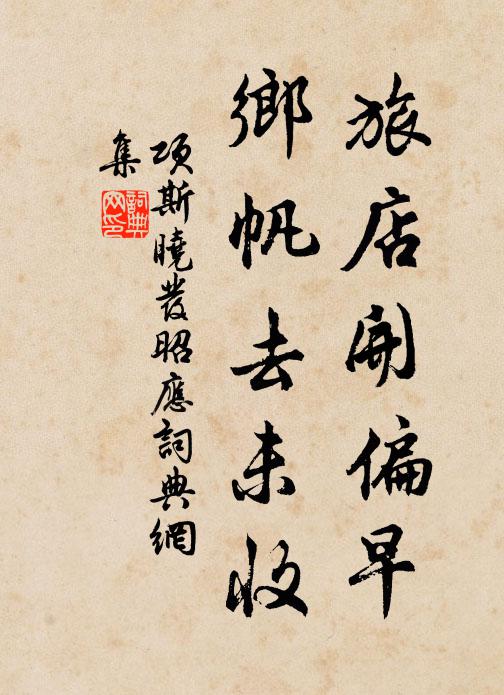 旅店開偏早
鄉帆去未收
項斯曉發昭應詞典網
集
詞典
网印